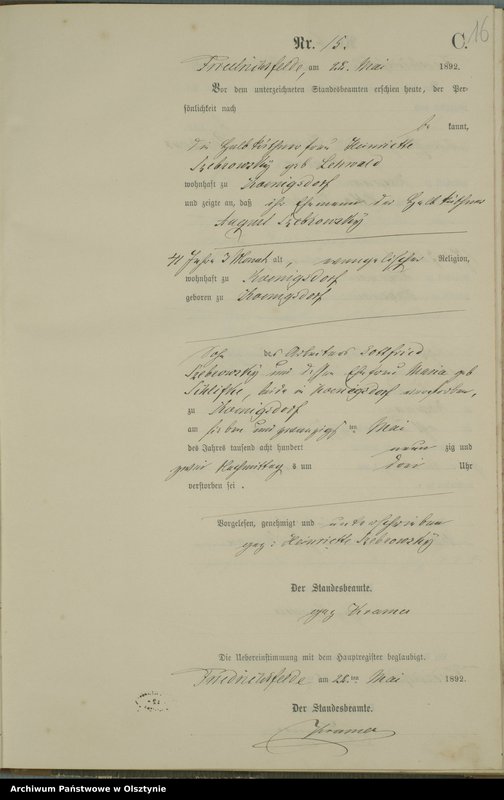 16
Nr. 15.
C.
Friedrichsfelde, am 28. Mai 1892.
Vor dem unterzeichneten Standesbeamten erschien heute, der Per-
sönlichkeit nach
be kannt,
die Halbkäthnerfrau Heinriette
Szebrowsky geb Lehwald
wohnhaft zu Koenigsdorf
und zeigte an, daß ihr Ehemann der Halbkäthner
August Szebrowsky
41 Jahre 3 Monat alt, evangelischer Religion,
wohnhaft zu Koenigsdorf
geboren zu Koenigsdorf
Sohn des Arbeiters Gottfried
Szebrowsky und dessen Ehefrau Maria geb
beide in Koenigsdorf verstorben,
zu Koenigsdorf
am sieben und zwanzigsten Mai
des Jahres tausend acht hundert neun zig und
zwei Nachmittag s um drei Uhr
verstorben sei.
Vorgelesen, genehmigt und unterschrieben
gez: Heinriette Szebrowsky
Der Standesbeamte.
gez Kramer
Die Uebereinstimmung mit dem Hauptregister beglaubigt.
Friedrichsfelde am 28.ten Mai 1892.
Der Standesbeamte.
Kramer
Archiwum Państwowe w Olsztynie